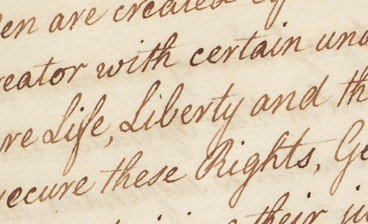 en are created eq
eator with certain una
re Life, Liberty and th
ecure these Rights, Go
their ju